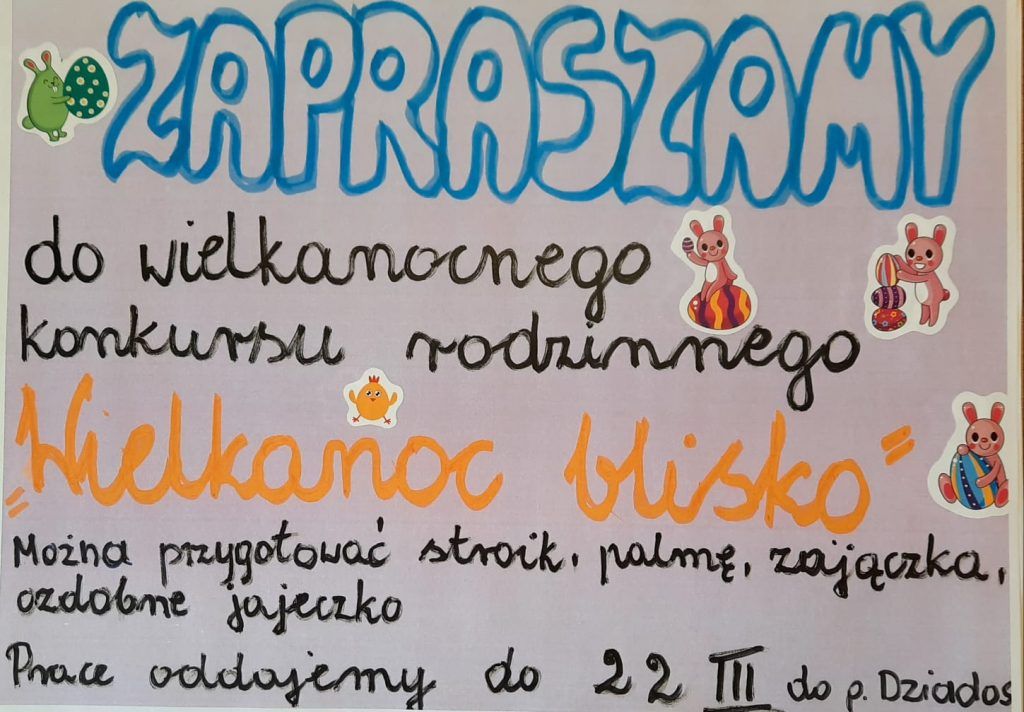 ZAPRASZAMY
do wielkanocnego
konkursu rodzinnego
„Wielkanoc blisko"
Można przygotować stroik, palmę, zajączka,
ozdobne jajeczko
Prace oddajemy do 22 III do p. Dziados